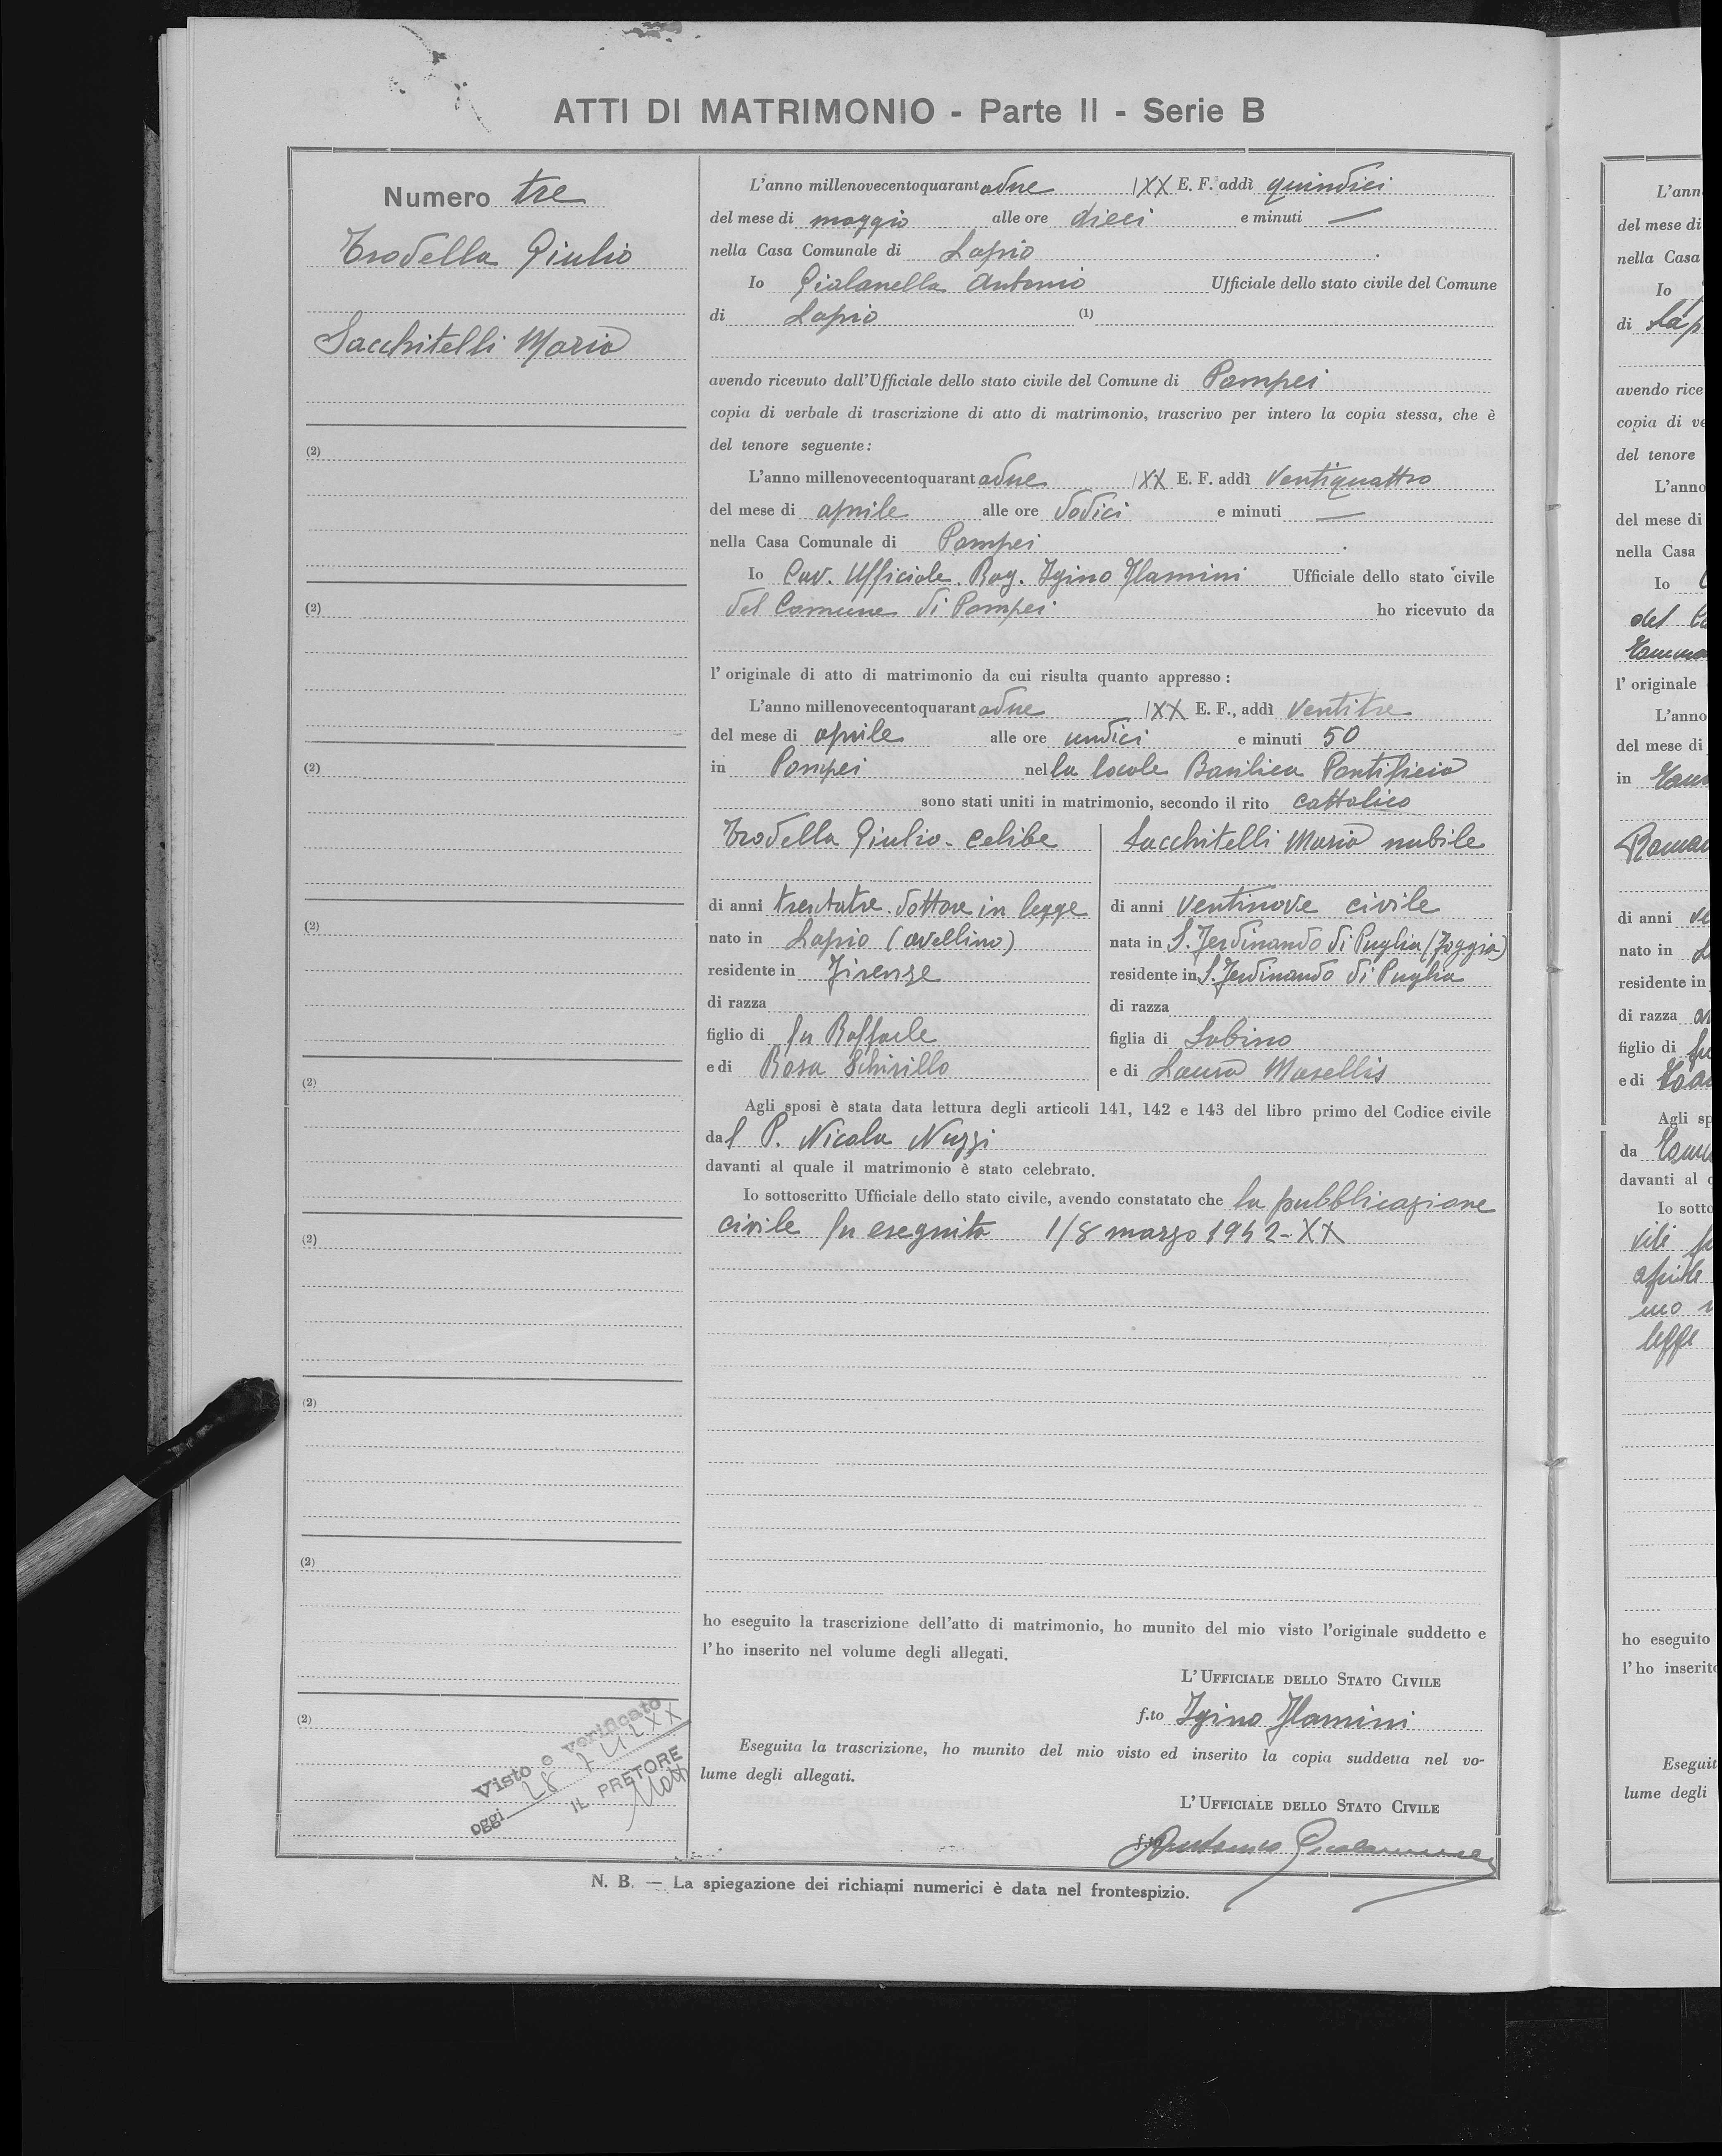 ATTI DI MATRIMONIO - Parte II - Serie B
Numero tre
Trodella Giulio
Sacchitelli Maria
(2)
(2)
(2)
(2)
(2)
(2)
(2)
(2)
(2)
Visto e verificato
oggi 28 7 U LXX
IL PRETORE
L'anno millenovecentoquarantadue XX E. F. addì quindici
del mese di maggio alle ore dieci e minuti —
nella Casa Comunale di Lapio
Io Gialanella Antonio Ufficiale dello stato civile del Comune
di Lapio (1)
avendo ricevuto dall'Ufficiale dello stato civile del Comune di Pompei
copia di verbale di trascrizione di atto di matrimonio, trascrivo per intero la copia stessa, che è
del tenore seguente:
L'anno millenovecentoquarantadue XX E. F. addì ventiquattro
del mese di aprile alle ore dodici e minuti —
nella Casa Comunale di Pompei
Io Cav. Ufficiale. Rag. Igino Flamini Ufficiale dello stato civile
del Comune di Pompei ho ricevuto da
l'originale di atto di matrimonio da cui risulta quanto appresso:
L'anno millenovecentoquarantadue XX E. F., addì ventitre
del mese di aprile alle ore undici e minuti 50
in Pompei nella locale Basilica Pontificia
sono stati uniti in matrimonio, secondo il rito cattolico
Trodella Giulio - celibe
di anni trentatre. dottore in legge
nato in Lapio (avellino)
residente in Firenze
di razza
figlio di fu Raffaele
e di Rosa Schirillo
Sacchitelli Maria nubile
di anni ventinove civile
nata in S. Ferdinando di Puglia (Foggia)
residente in S. Ferdinando di Puglia
di razza
figlia di Sabino
e di Laura Masellis
Agli sposi è stata data lettura degli articoli 141, 142 e 143 del libro primo del Codice civile
dal P. Nicola Nuzzi
davanti al quale il matrimonio è stato celebrato.
Io sottoscritto Ufficiale dello stato civile, avendo constatato che la pubblicazione
civile fu eseguita 1/8 marzo 1942-XX
ho eseguito la trascrizione dell'atto di matrimonio, ho munito del mio visto l'originale suddetto e
l'ho inserito nel volume degli allegati.
L'UFFICIALE DELLO STATO CIVILE
f.to Igino Flamini
Eseguita la trascrizione, ho munito del mio visto ed inserito la copia suddetta nel vo-
lume degli allegati.
L'UFFICIALE DELLO STATO CIVILE
Antonio Gialanella
N. B. — La spiegazione dei richiami numerici è data nel frontespizio.
L'ann
del mese di
nella Casa
Io
di Lap
avendo rice
copia di ve
del tenore
L'anno
del mese di
nella Casa
Io
del Co
l'originale
L'anno
del mese di
in
di anni ve
nato in
residente in
di razza
figlio di fu
e di
Agli sp
da
davanti al q
Io sotto
aprile
legge
ho eseguito
l'ho inserito
Eseguit
lume degli